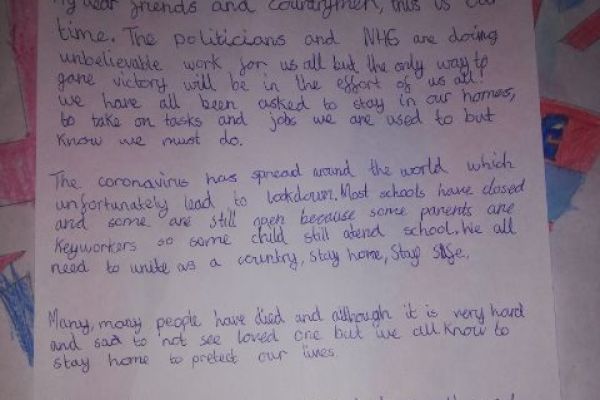 dear friends and countrymen, this is our
time. The politicians and NHS are doing
unbelievable work for us all but the only way to
gane victory will be in the effort of us all!
we have all been asked to stay in our homes,
to take on tasks and jobs we are used to but
know we must do.
The coronavirus has spread around the world which
unfortunately lead to lockdown. Most schools have closed
and some are still open because some parents are
keyworkers so some child still atend school. We all
need to unite as a country, stay home, stay safe.
Many, many people have died and although it is very hard
and sad to not see loved one but we all know to
stay home to pretect our lives.